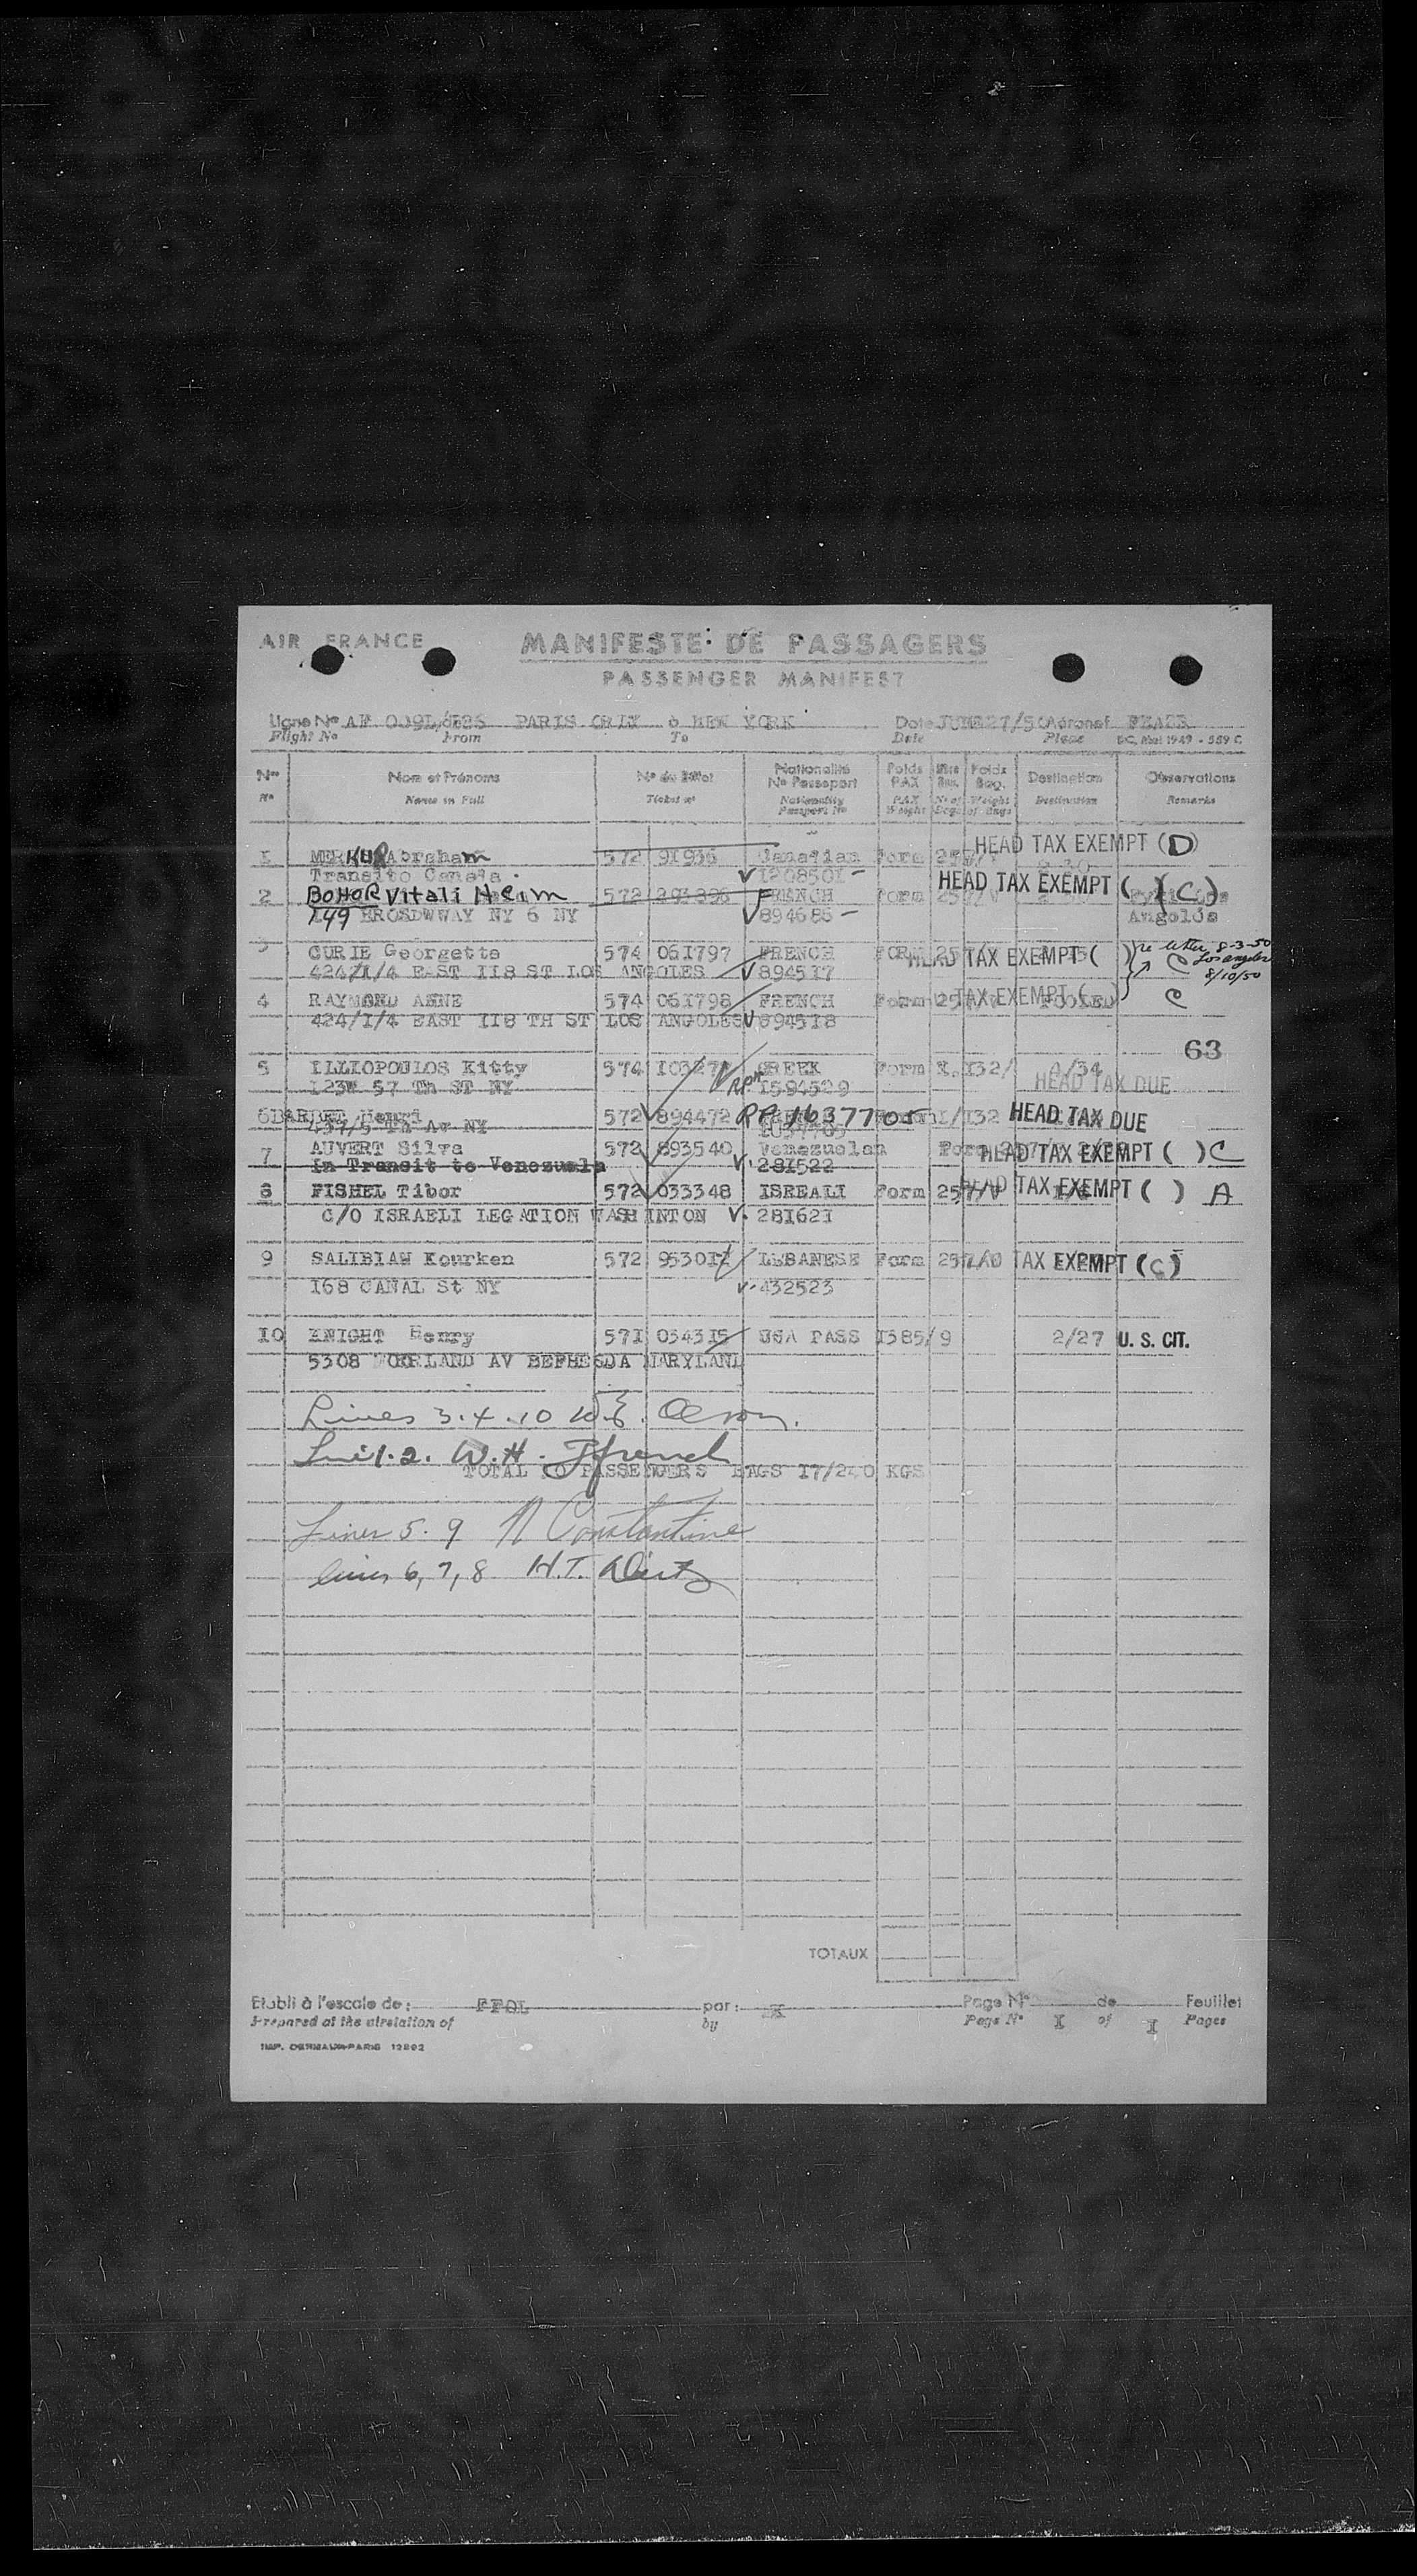 AIR FRANCE
MANIFESTE DE PASSAGERS
PASSENGER MANIFEST
Ligne N° AF 009L/ PARIS ORLY à NEW YORK Date JUNE 27/50 Aéronef
Flight No From To Date Plane DC, Mai 1949 - 589 C
Nos Nom et Prénoms N° du Billet Nationalité N° Passeport Poids PAX Nbre Bag. Poids Bag. Destination Observations
N° Name in Full Ticket n° Nationality Passport No PAX Weight N° of Bags Weight of Bags Destination Remarks
HEAD TAX EXEMPT (D)
1 MERKUR Abraham 572 91936 Canadian Form
Transito Canada 1208501 -
HEAD TAX EXEMPT ( ) (C)
2 BOHOR Vitali Heim 572 FRENCH Form
149 BROSDWWAY NY 6 NY 894686 - Angolós
3 CURIE Georgette 574 061797 FRENCH FORM HEAD TAX EXEMPT ( ) re letter 8-3-50
424/1/4 EAST 118 ST LOS ANGOLES 894517 C Los Angeles
8/10/50
4 RAYMOND ANNE 574 061798 FRENCH Form TAX EXEMPT ( ) C
424/I/4 EAST II8 TH ST LOS ANGOLES 894518
63
5 ILLIOPOULOS Kitty 574 GREEK Form I.I32/ A/34
123W 57 Th ST NY 1594529 HEAD TAX DUE
6 BARBET Henri 572 894472 PP 1637705 I/I32 HEAD TAX DUE
437/5 Th Av NY
7 AUVERT Silva 572 893540 Venezuelan Form HEAD TAX EXEMPT ( ) C
In Transit to Venezuela 281522
8 FISHEL Tibor 572 033348 ISREALI Form 257/V HEAD TAX EXEMPT ( ) A
C/O ISRAELI LEGATION WASHINTON 281621
9 SALIBIAN Kourken 572 953012 LEBANESE Form TAX EXEMPT (C)
168 CANAL St NY 432523
10 KNIGHT Henry 571 034315 USA PASS 1385/9 2/27 U. S. CIT.
5308 AV BETHESDA MARYLAND
Lines 3.4.10 W.E.
1.2. W.H. Ffrench
TOTAL 10 PASSENGERS BAGS 17/240 KGS
Lines 5. 9 N Constantine
lines 6, 7, 8 H.T.
TOTAUX
Etabli à l'escale de : par : X Page N° de Feuillet
Prepared at the airstation of by Page N° I of I Pages
IMP. DERMAUX-PARIS 12802